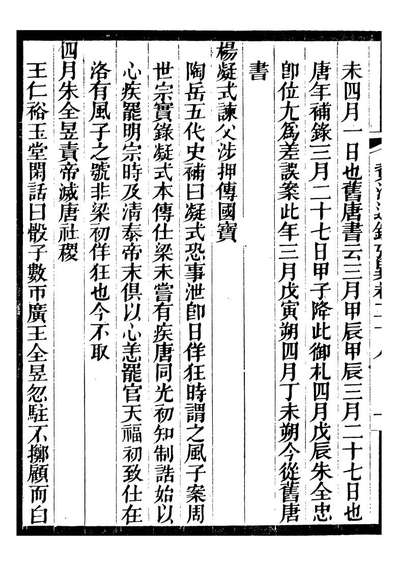 未四月一日也舊唐書云三月甲辰甲辰三月二十七日也
唐年補錄三月二十七日甲子降此御札四月戊辰朱全忠
卽位尤爲差誤案此年三月戊寅朔四月丁未朔今從舊唐
書
楊凝式諫父涉押傳國寶
陶岳五代史補曰凝式恐事泄卽日佯狂時謂之風子案周
世宗實錄凝式本傳仕梁未嘗有疾唐同光初知制誥始以
心疾罷明宗時及清泰帝末俱以心恙罷官天福初致仕在
洛有風子之號非梁初佯狂也今不取
四月朱全昱責帝滅唐社稷
王仁裕玉堂閑話曰骰子數帀廣王全昱忽駐不擲顧而白